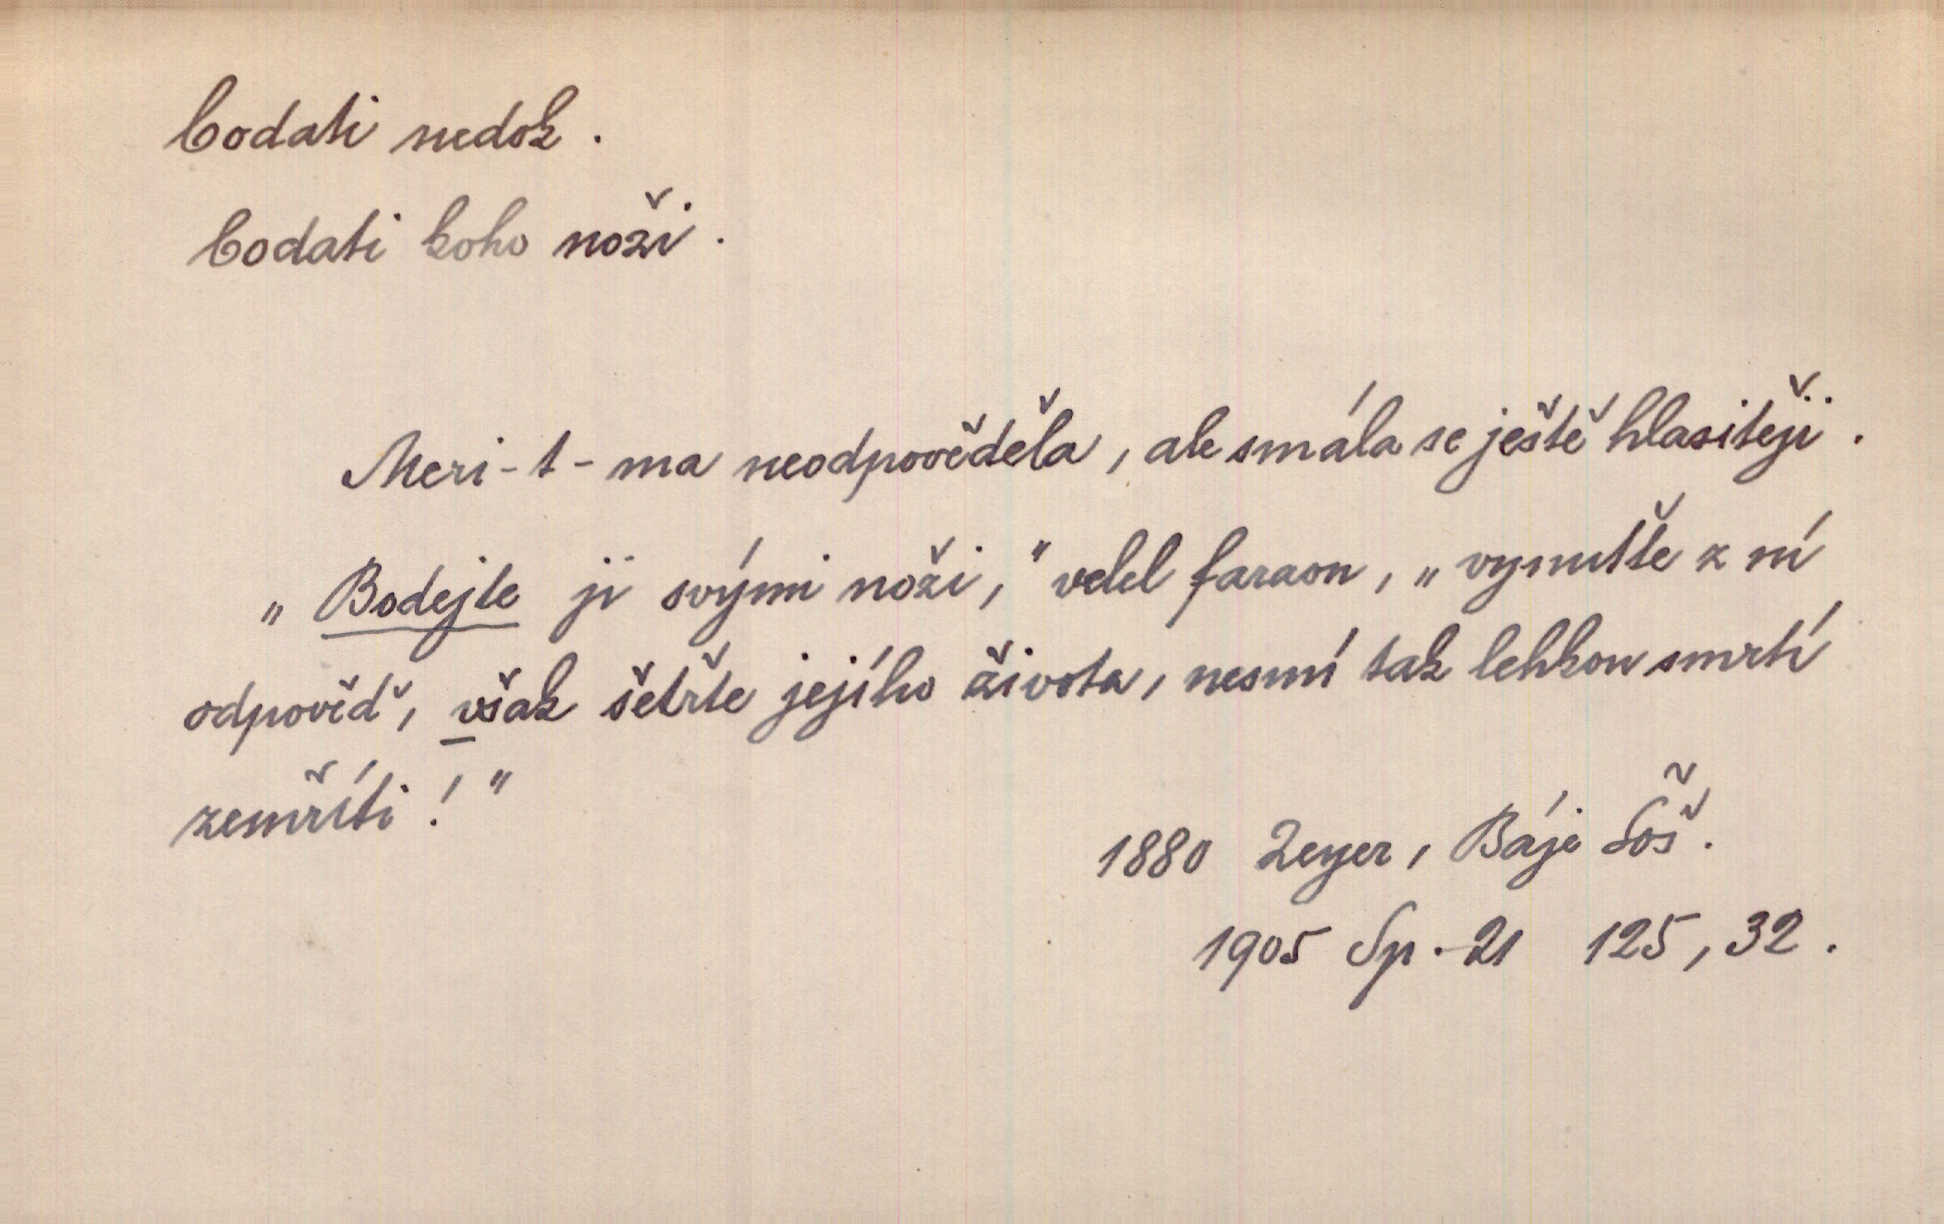 bodati nedok.
bodati koho noži.
Meri-t-ma neodpověděla, ale smála se ještě hlasitěji.
„Bodejte ji svými noži,“ velel faraon, „vynuťte z ní
odpověď, však šetřte jejího života, nesmí tak lehkou smrtí
zemříti!“
1880 Zeyer, Báje Šoš.
1905 Sp.-21 125,32.